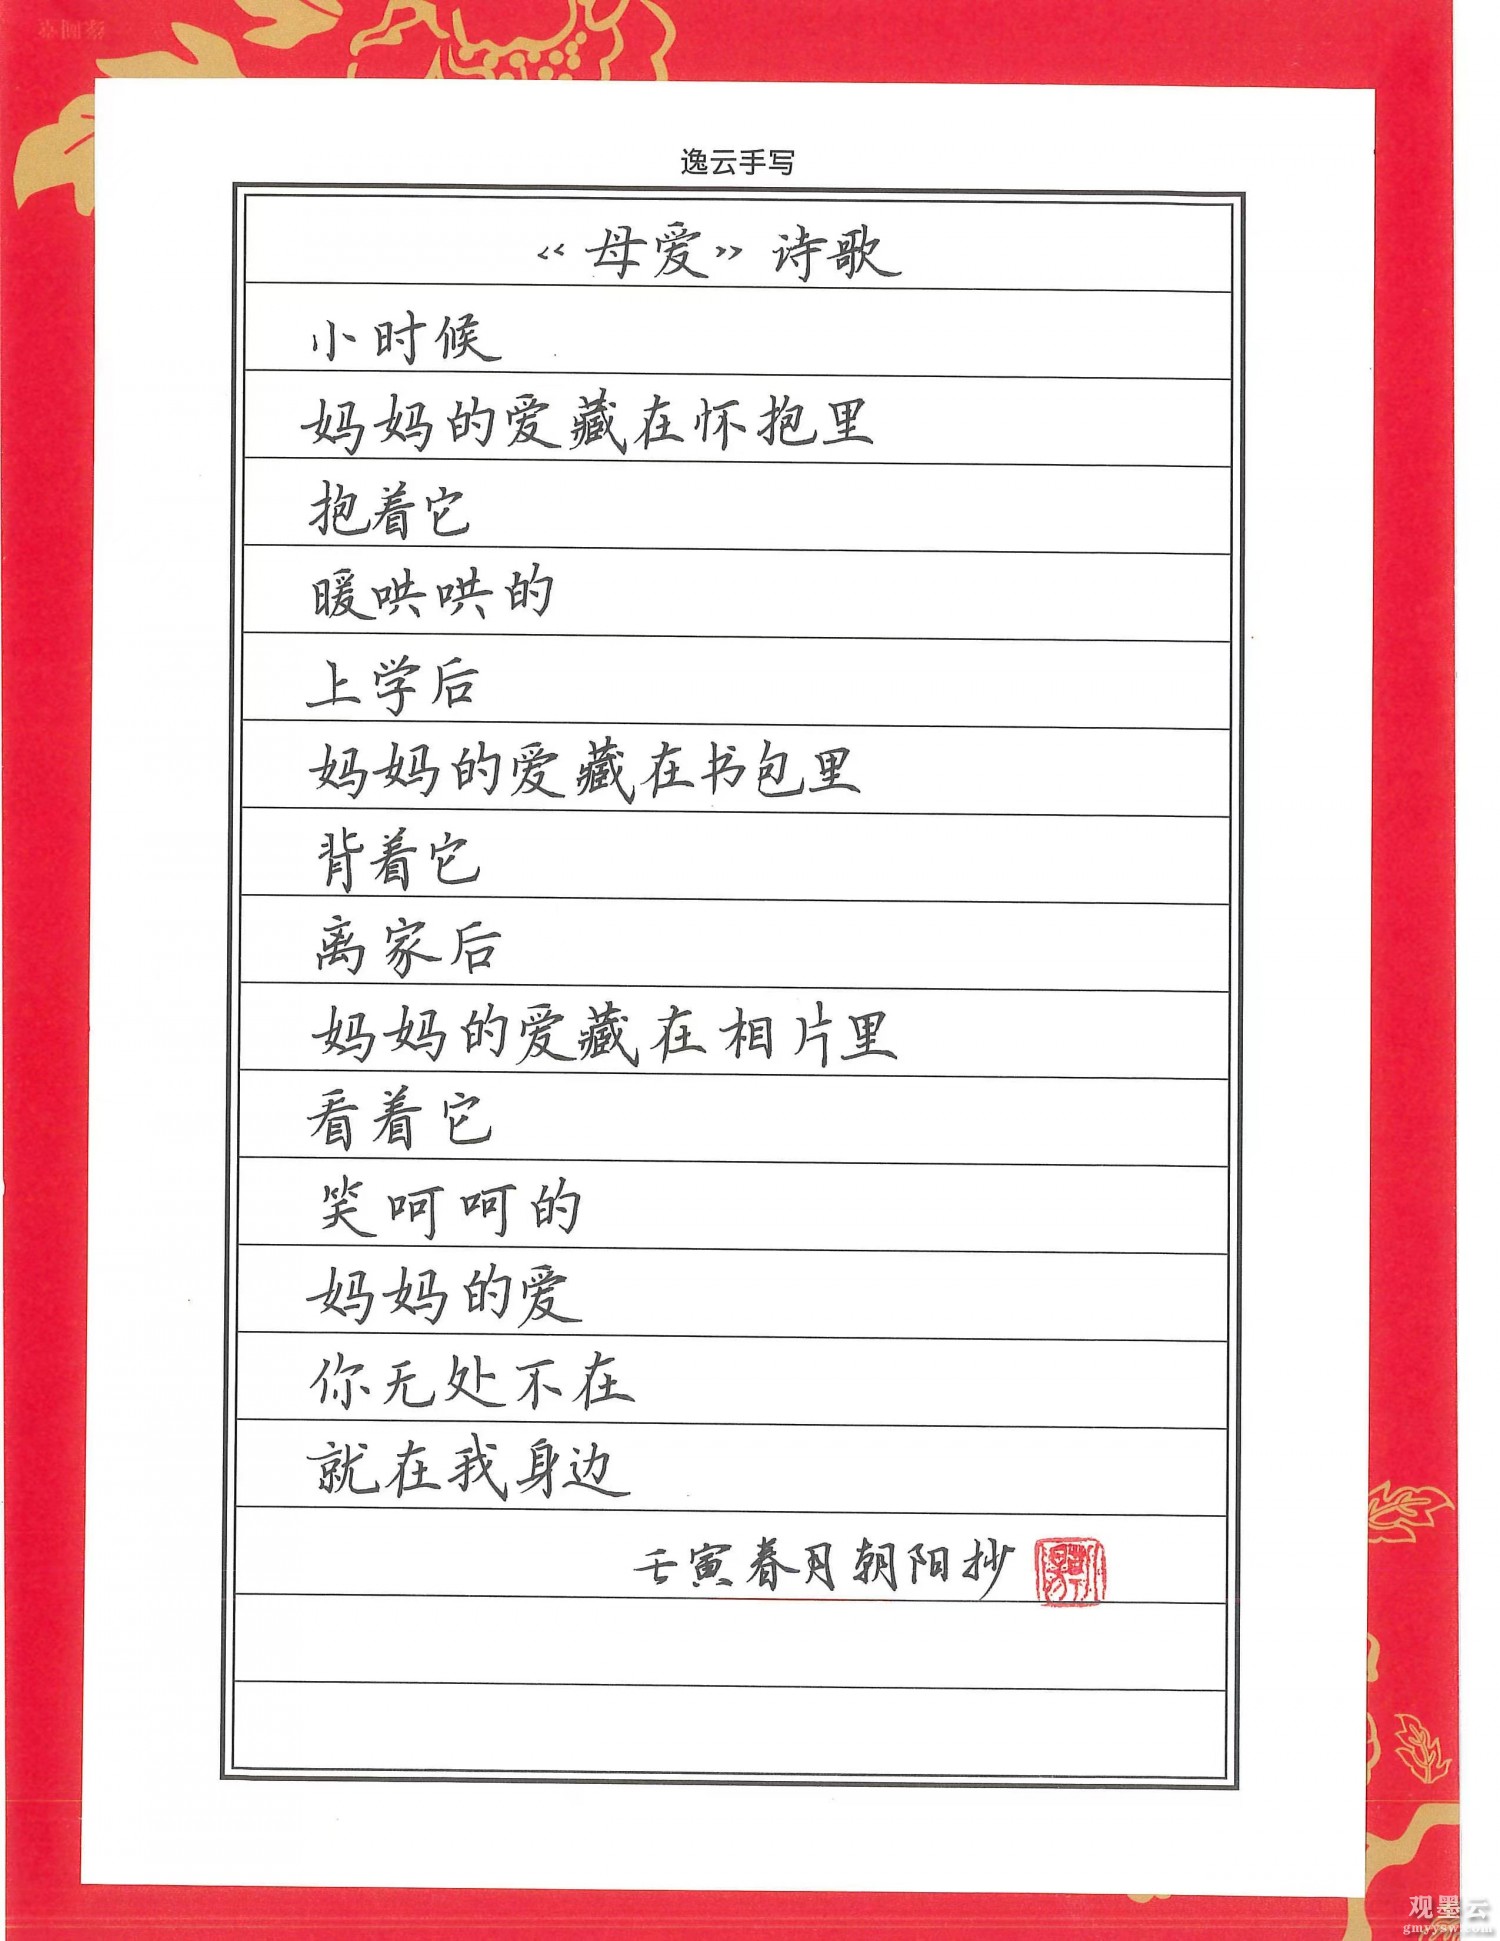 逸云手写
《母爱》诗歌
小时候
妈妈的爱藏在怀抱里
抱着它
暖哄哄的
上学后
妈妈的爱藏在书包里
背着它
离家后
妈妈的爱藏在相片里
看着它
笑呵呵的
妈妈的爱
你无处不在
就在我身边
壬寅春月朝阳抄
观墨云
gmyysw.com